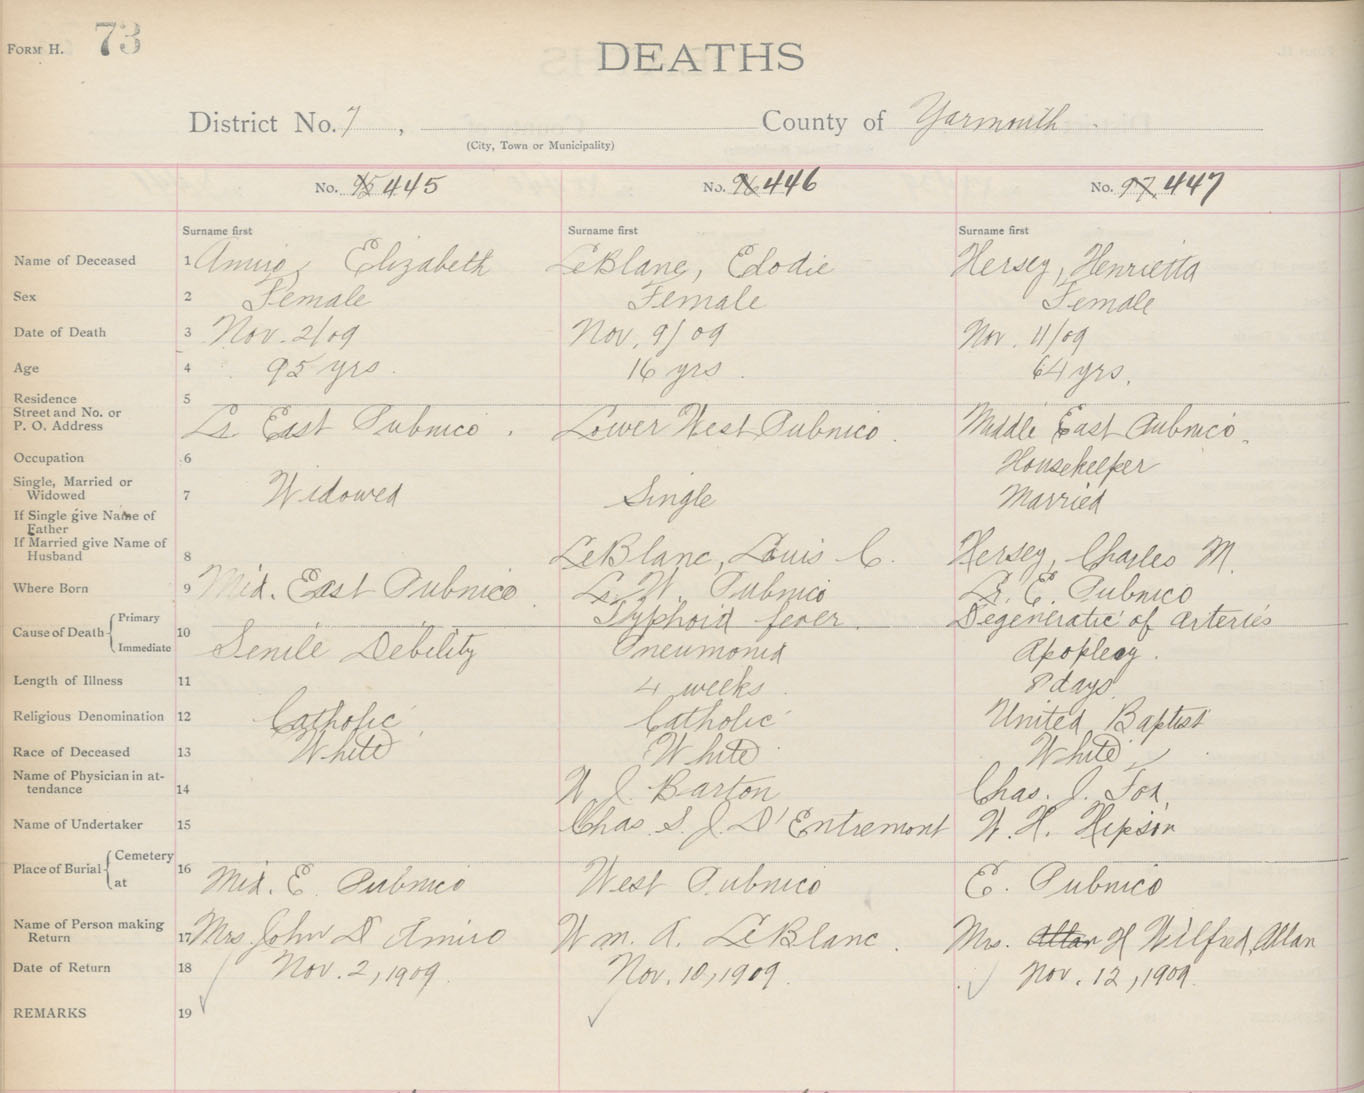 FORM H. 73
DEATHS
District No. 7, County of Yarmouth
(City, Town or Municipality)
No. 95 445 No. 96 446 No. 97 447
Surname first Surname first Surname first
Name of Deceased 1 Amiro, Elizabeth LeBlanc, Elodie Hersey, Henrietta
Sex 2 Female Female Female
Date of Death 3 Nov. 2/09 Nov. 9/09 Nov. 11/09
Age 4 95 yrs. 16 yrs. 64 yrs.
Residence 5
Street and No. or
P. O. Address Lr East Pubnico. Lower West Pubnico. Middle East Pubnico.
Occupation 6 Housekeeper
Single, Married or
Widowed 7 Widowed Single Married
If Single give Name of
Father
If Married give Name of
Husband 8 LeBlanc, Louis C. Hersey, Charles M.
Where Born 9 Mid. East Pubnico. Lr. W. Pubnico Lr. E. Pubnico
Cause of Death Primary 10 Typhoid fever. Degeneratic of arteries
Immediate Senile Debility Pneumonia Apoplexy.
Length of Illness 11 4 weeks. 8 days
Religious Denomination 12 Catholic Catholic United Baptist
Race of Deceased 13 White White White
Name of Physician in at-
tendance 14 W J. Barton Chas. J. Fox,
Name of Undertaker 15 Chas S. J. D'Entremont W. H. Hipson
Place of Burial Cemetery 16
at Mid. E. Pubnico West Pubnico E. Pubnico
Name of Person making
Return 17 Mrs. John D Amiro Wm. A. LeBlanc. Mrs. Allan H Wilfred, Allan
Date of Return 18 Nov. 2, 1909. Nov. 10, 1909. Nov. 12, 1909.
REMARKS 19